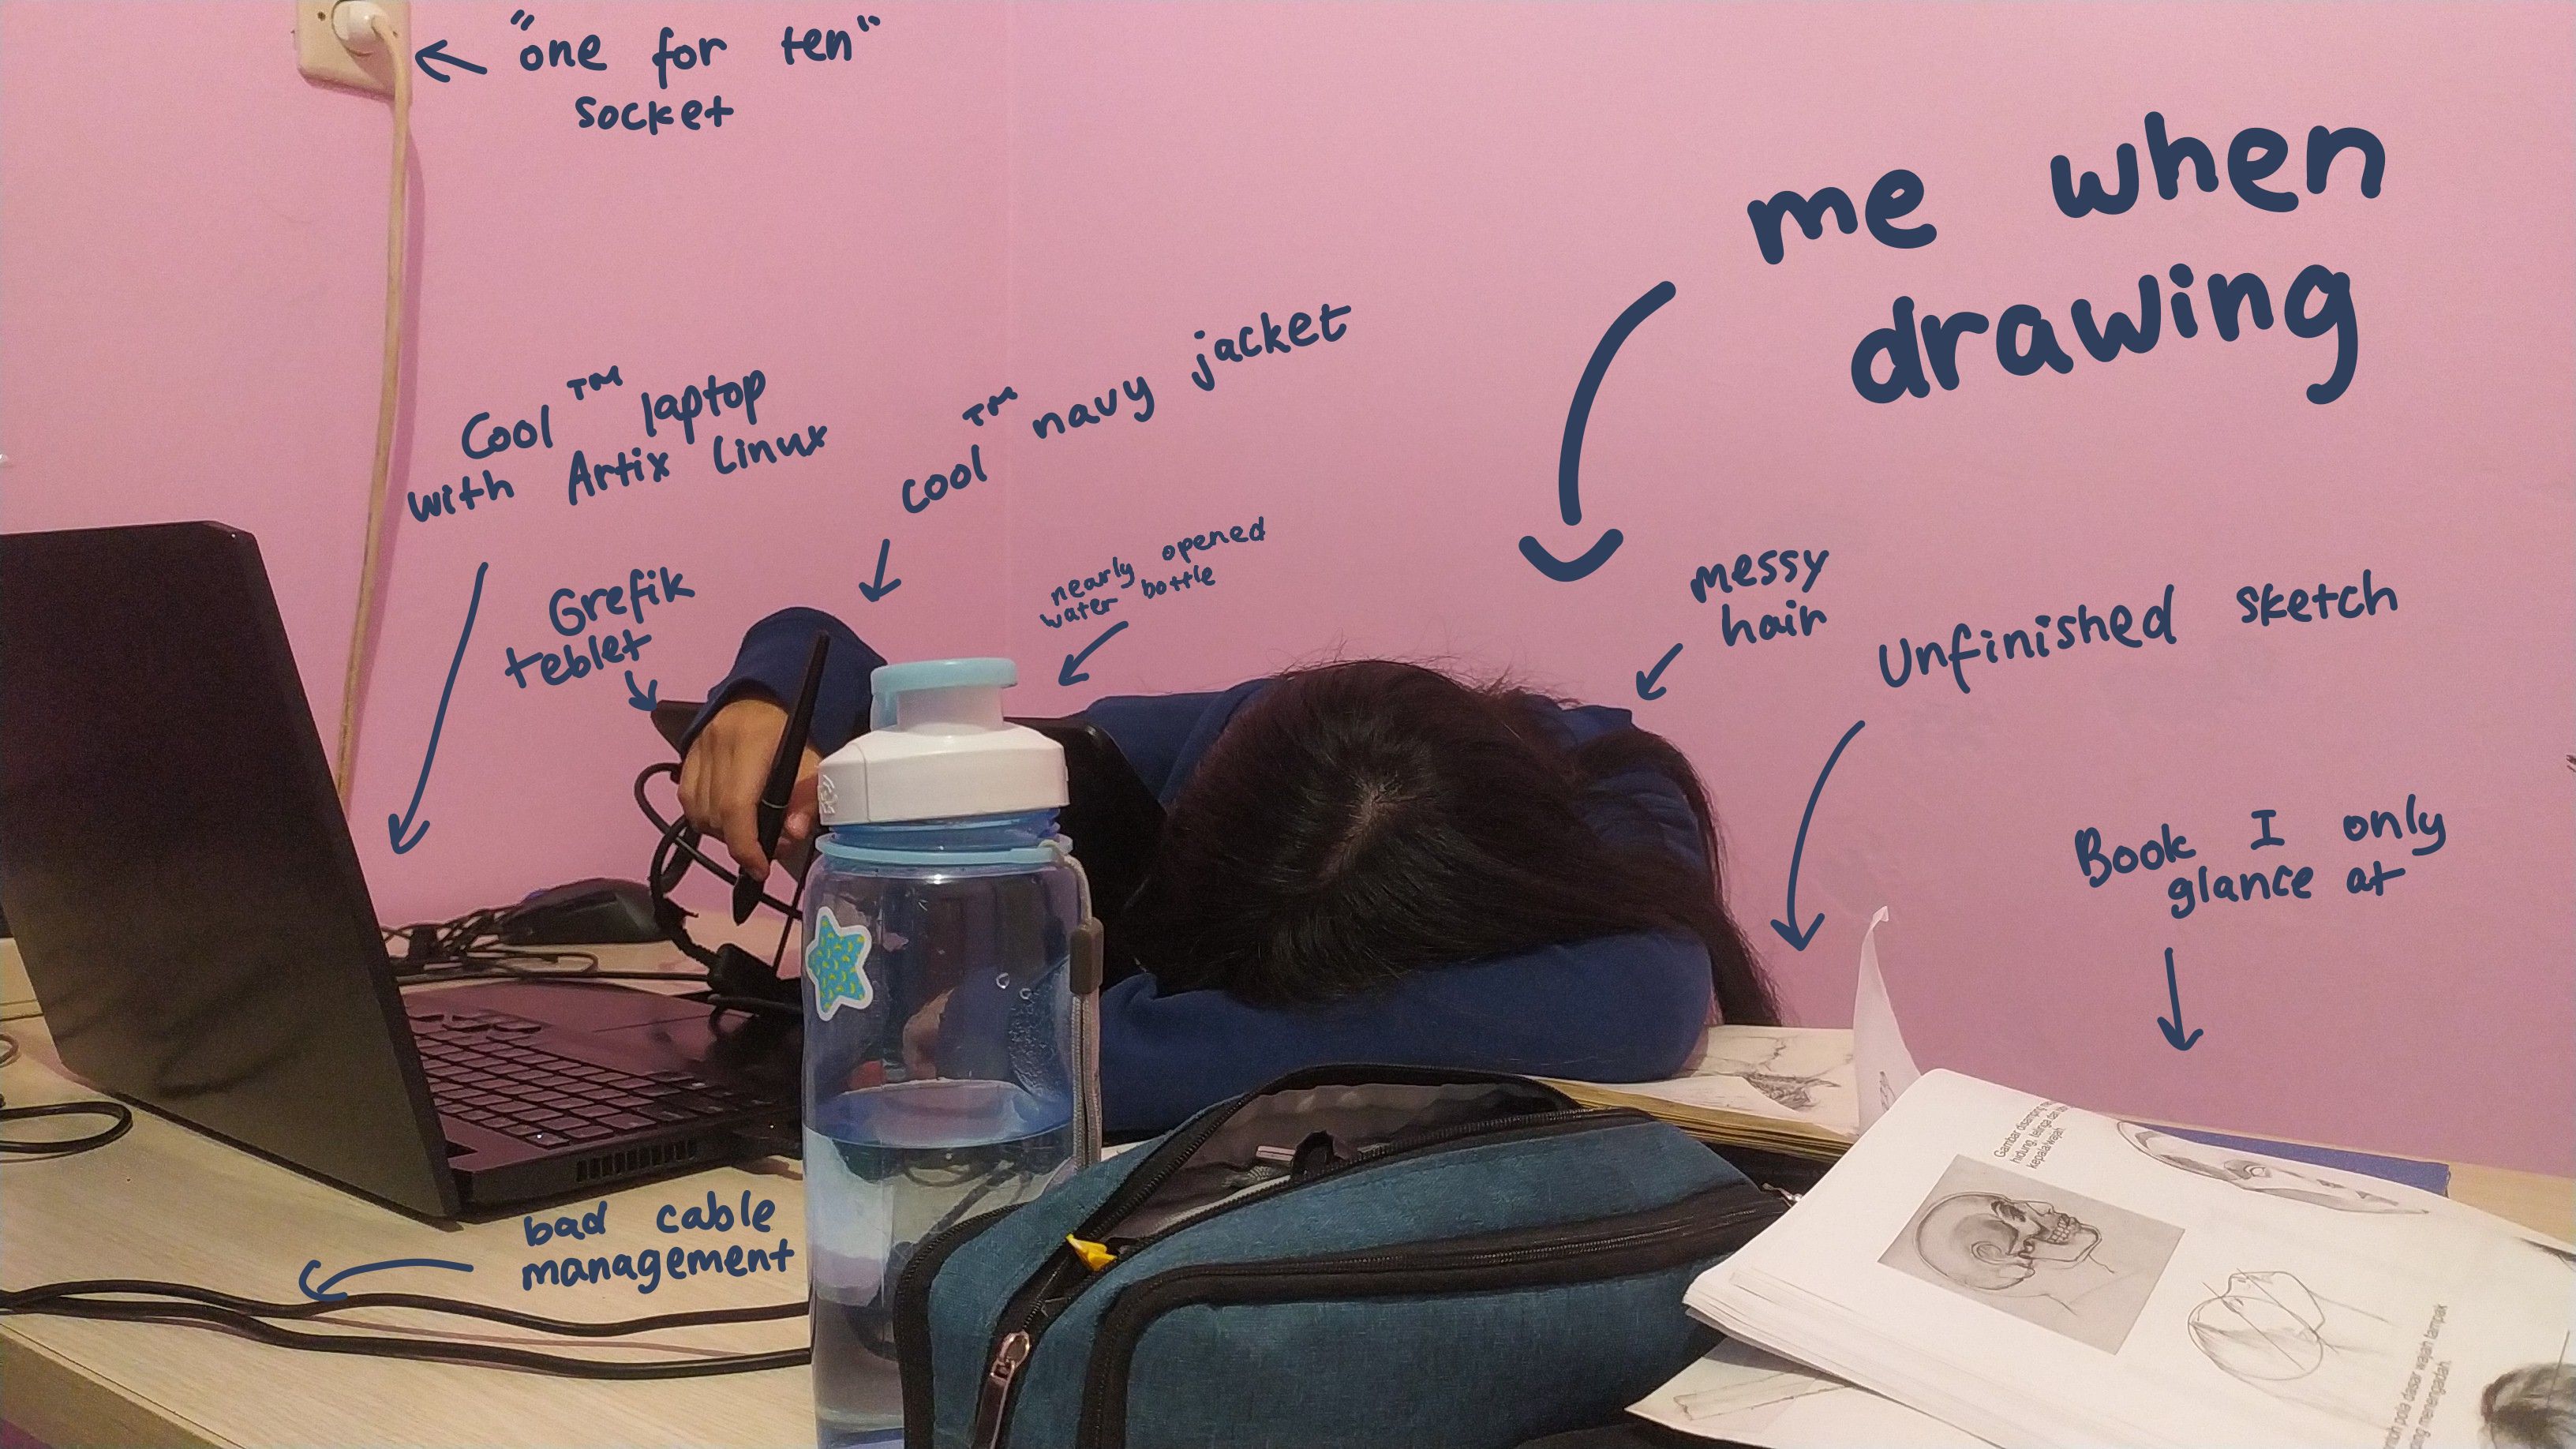 "one for ten"
socket
me when
drawing
Cool™ laptop
with Artix Linux
cool™ navy jacket
Grefik
teblet
nearly opened
water bottle
messy
hair
Unfinished sketch
Book I only
glance at
bad cable
management
Gambar disamping
hidung, telinga dan
kepala/wajah.
pola dasar wajah tampak
menengadah.